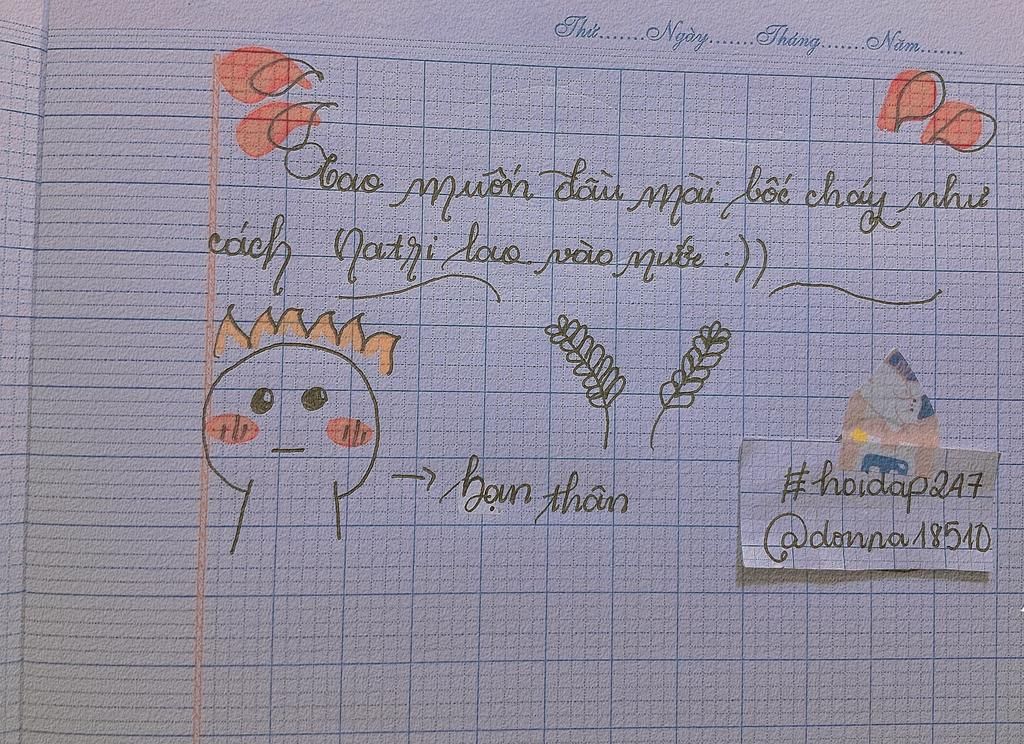 Thứ.......Ngày.......Tháng.......Năm.......
Tao muốn đầu mài bốc cháy như
cách Natri lao vào nước :))
→ bạn thân
#hoidap247
@donna18510